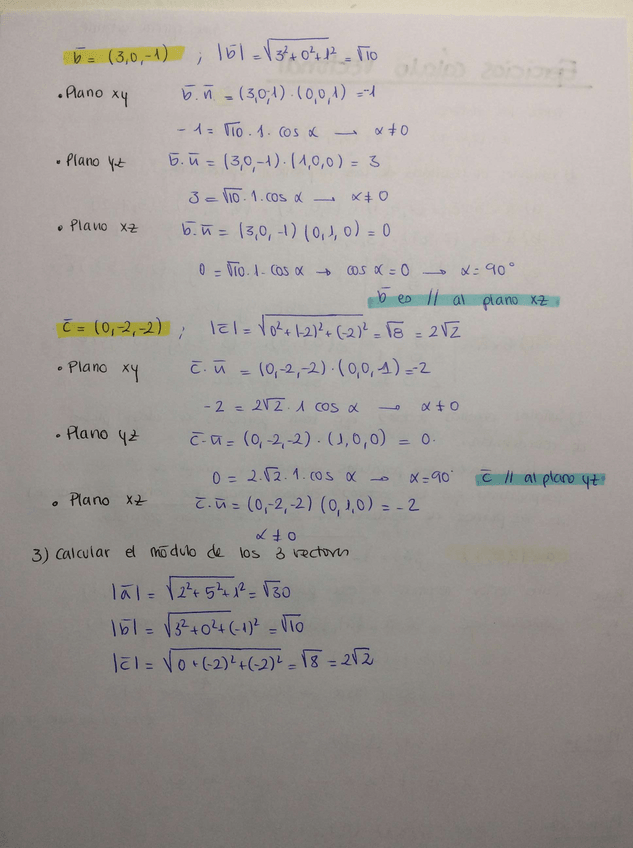 b̄ = (3,0,-1) ; |b̄| = √3²+0²+1² = √10
• Plano xy b̄·n̄ = (3,0,1)·(0,0,1) = -1
-1 = √10·1·cos α → α≠0
• Plano yz b̄·n̄ = (3,0,-1)·(1,0,0) = 3
3 = √10·1·cos α → α≠0
• Plano xz b̄·n̄ = (3,0,-1)(0,1,0) = 0
0 = √10·1·cos α → cos α = 0 → α = 90°
b̄ es // al plano xz
c̄ = (0,-2,-2) ; |c̄| = √0²+(-2)²+(-2)² = √8 = 2√2
• Plano xy c̄·n̄ = (0,-2,-2)·(0,0,1) = -2
-2 = 2√2·1 cos α → α≠0
• Plano yz c̄·n̄ = (0,-2,-2)·(1,0,0) = 0.
0 = 2·√2·1·cos α → α=90° c̄ // al plano yz
• Plano xz c̄·n̄ = (0,-2,-2)(0,1,0) = -2
α≠0
3) Calcular el módulo de los 3 vectores
|ā| = √2²+5²+1² = √30
|b̄| = √3²+0²+(-1)² = √10
|c̄| = √0+(-2)²+(-2)² = √8 = 2√2